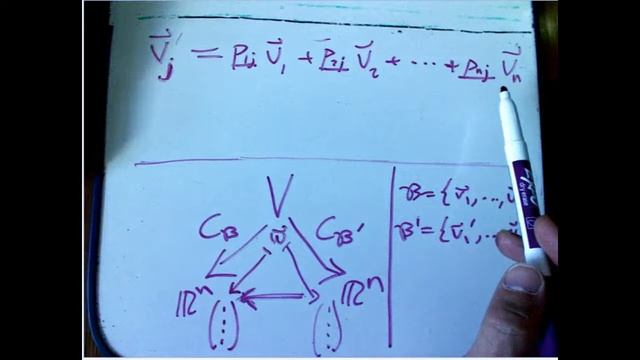 v⃗ⱼ' = p₁ⱼ v⃗₁ + p₂ⱼ v⃗₂ + ⋯ + pₙⱼ v⃗ₙ
V
C_B w⃗ C_B'
ℝⁿ ℝⁿ
(⋮) (⋮)
B = {v⃗₁, ..., v⃗
B' = {v⃗₁', ..., v⃗